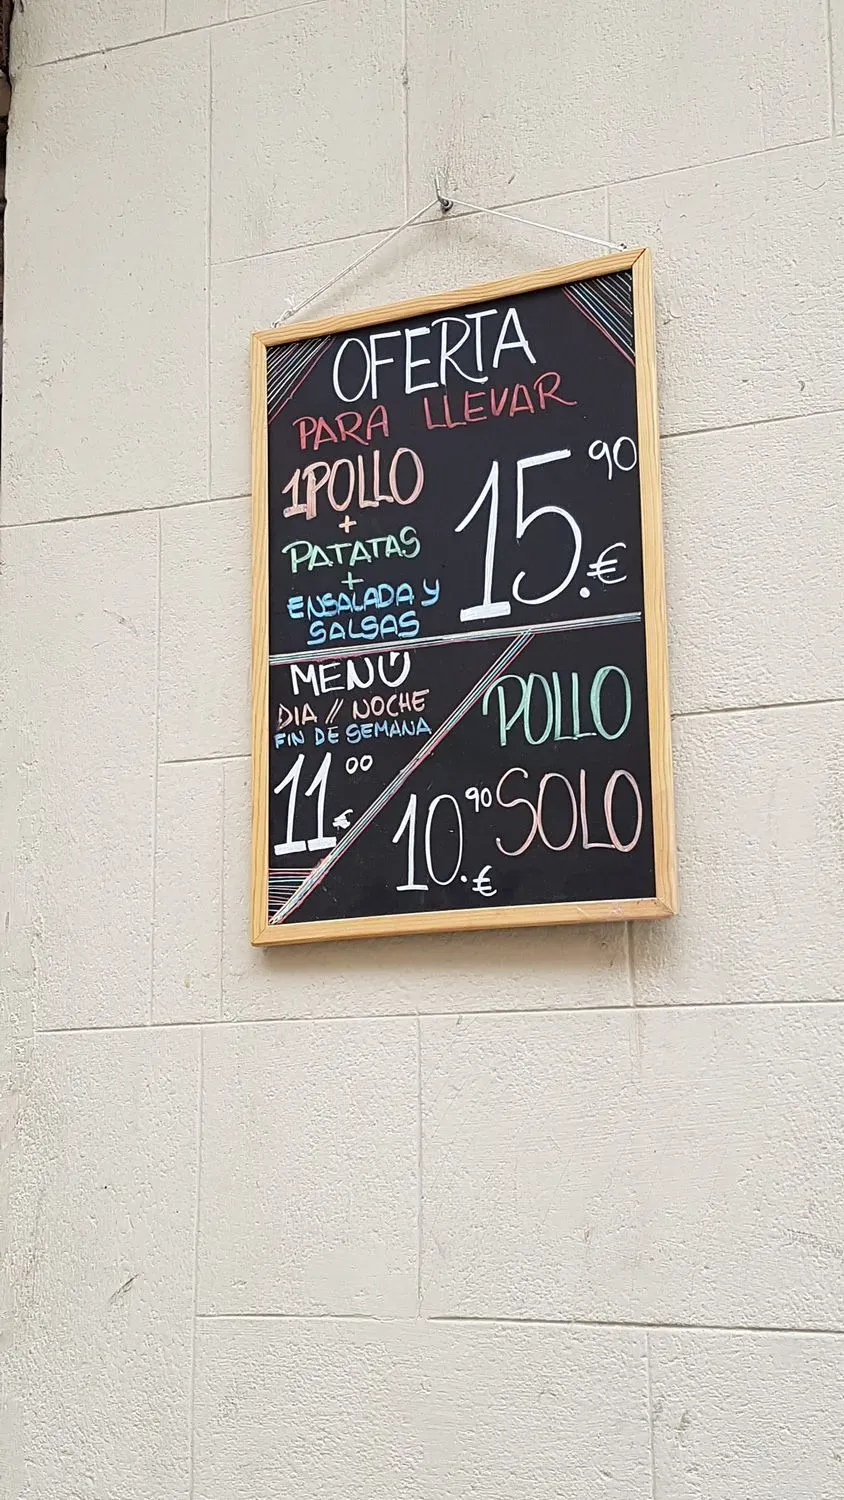 OFERTA
PARA LLEVAR
1 POLLO
+
PATATAS
+
ENSALADA Y
SALSAS
15.90 €
MENÚ
DIA // NOCHE
FIN DE SEMANA
11.00 €
POLLO
SOLO
10.90 €